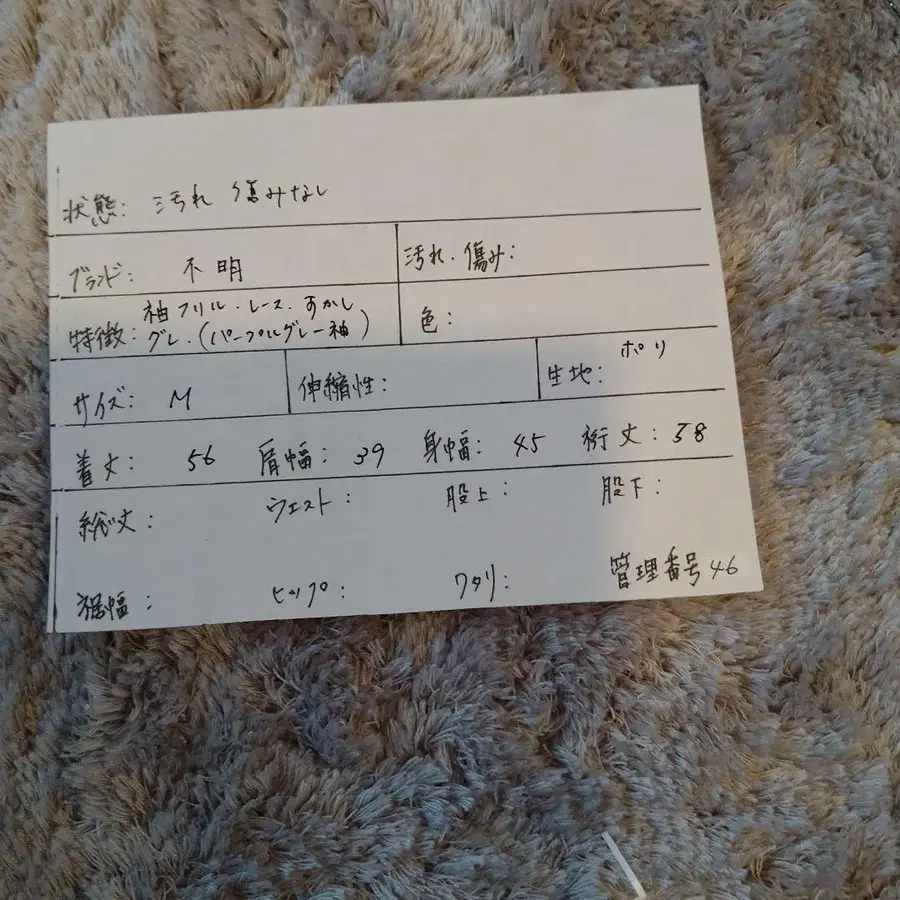 状態: 汚れ 傷みなし
ブランド: 不明 汚れ・傷み:
特徴: 袖フリル・レース・すかし
グレ.(パープルグレー袖) 色:
サイズ: M 伸縮性: 生地: ポリ
着丈: 56 肩幅: 39 身幅: 45 裄丈: 58
総丈: ウエスト: 股上: 股下:
裾幅: ヒップ: ワタリ: 管理番号46